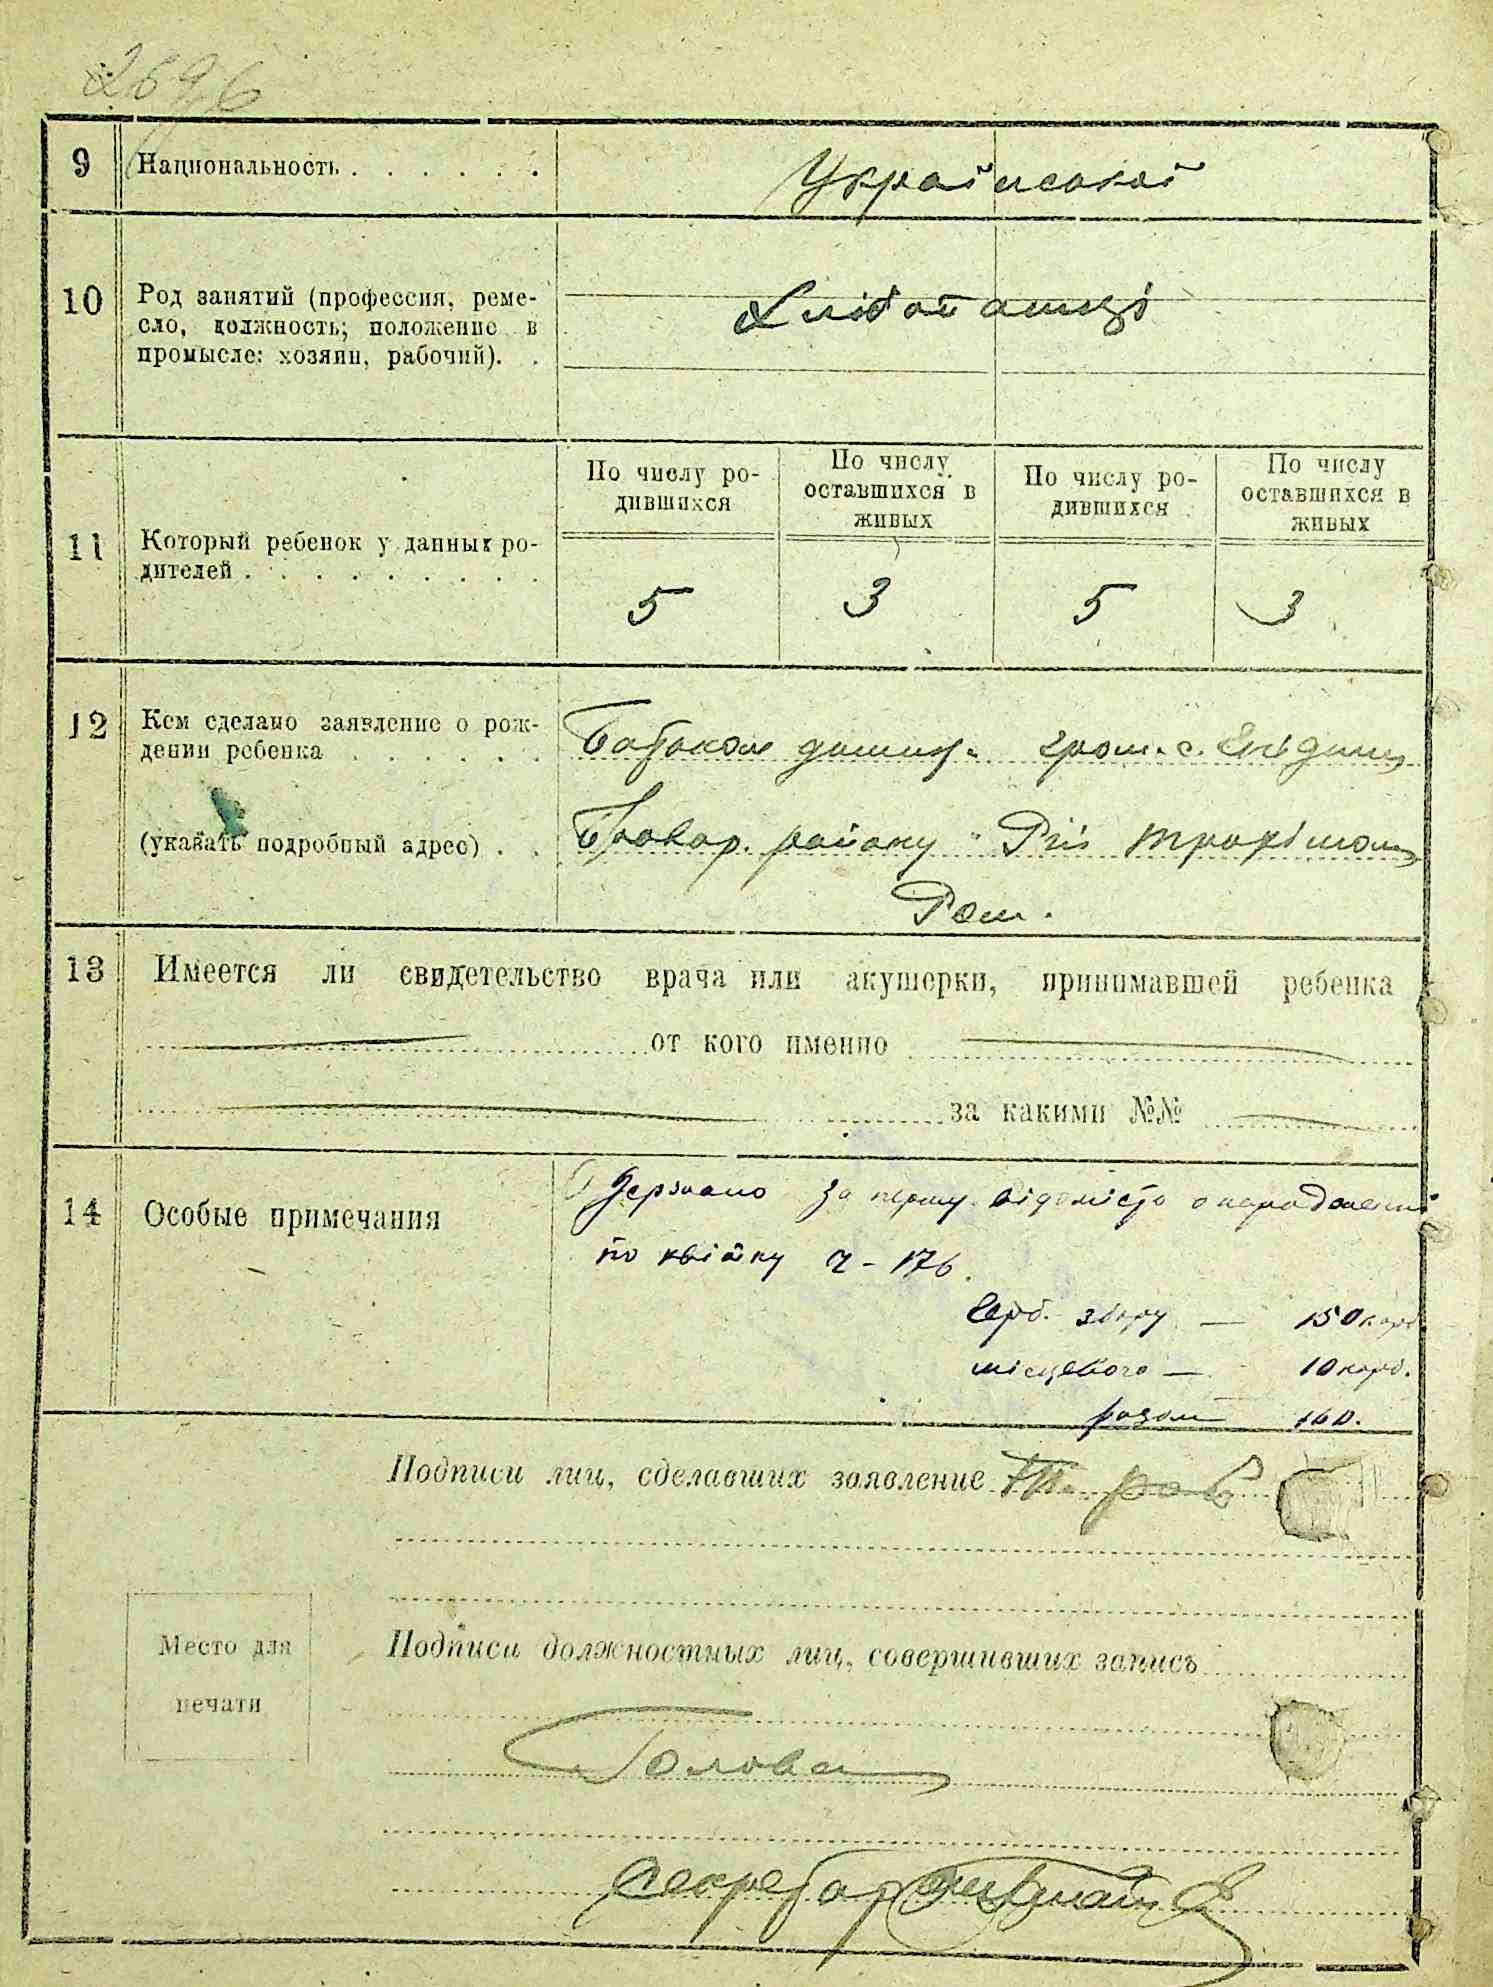 2696
9 Национальность . . . . . . Української
10 Род занятий (профессия, реме-
сло, должность; положение в
промысле: хозяин, рабочий). .
Хліботашці
По числу ро-
дившихся
По числу
оставшихся в
живых
По числу ро-
дившихся
По числу
оставшихся в
живых
11 Который ребенок у данных ро-
дителей . . . . . . . . .
5 3 5 3
12 Кем сделано заявление о рож-
дении ребенка . . . . . .
Батьком гром. с.
(указать подробный адрес) . .
Бровар. району
Ром.
13 Имеется ли свидетельство врача или акушерки, принимавшей ребенка
от кого именно
за какими №№
14 Особые примечания
за першу відомість о народженні
по квітку ч - 176.
Герб. збору — 150 карб
місцевого — 10 карб.
разом 160.
Подписи лиц, сделавших заявление
Место для
печати
Подписи должностных лиц, совершивших запись
Голова
Секретар